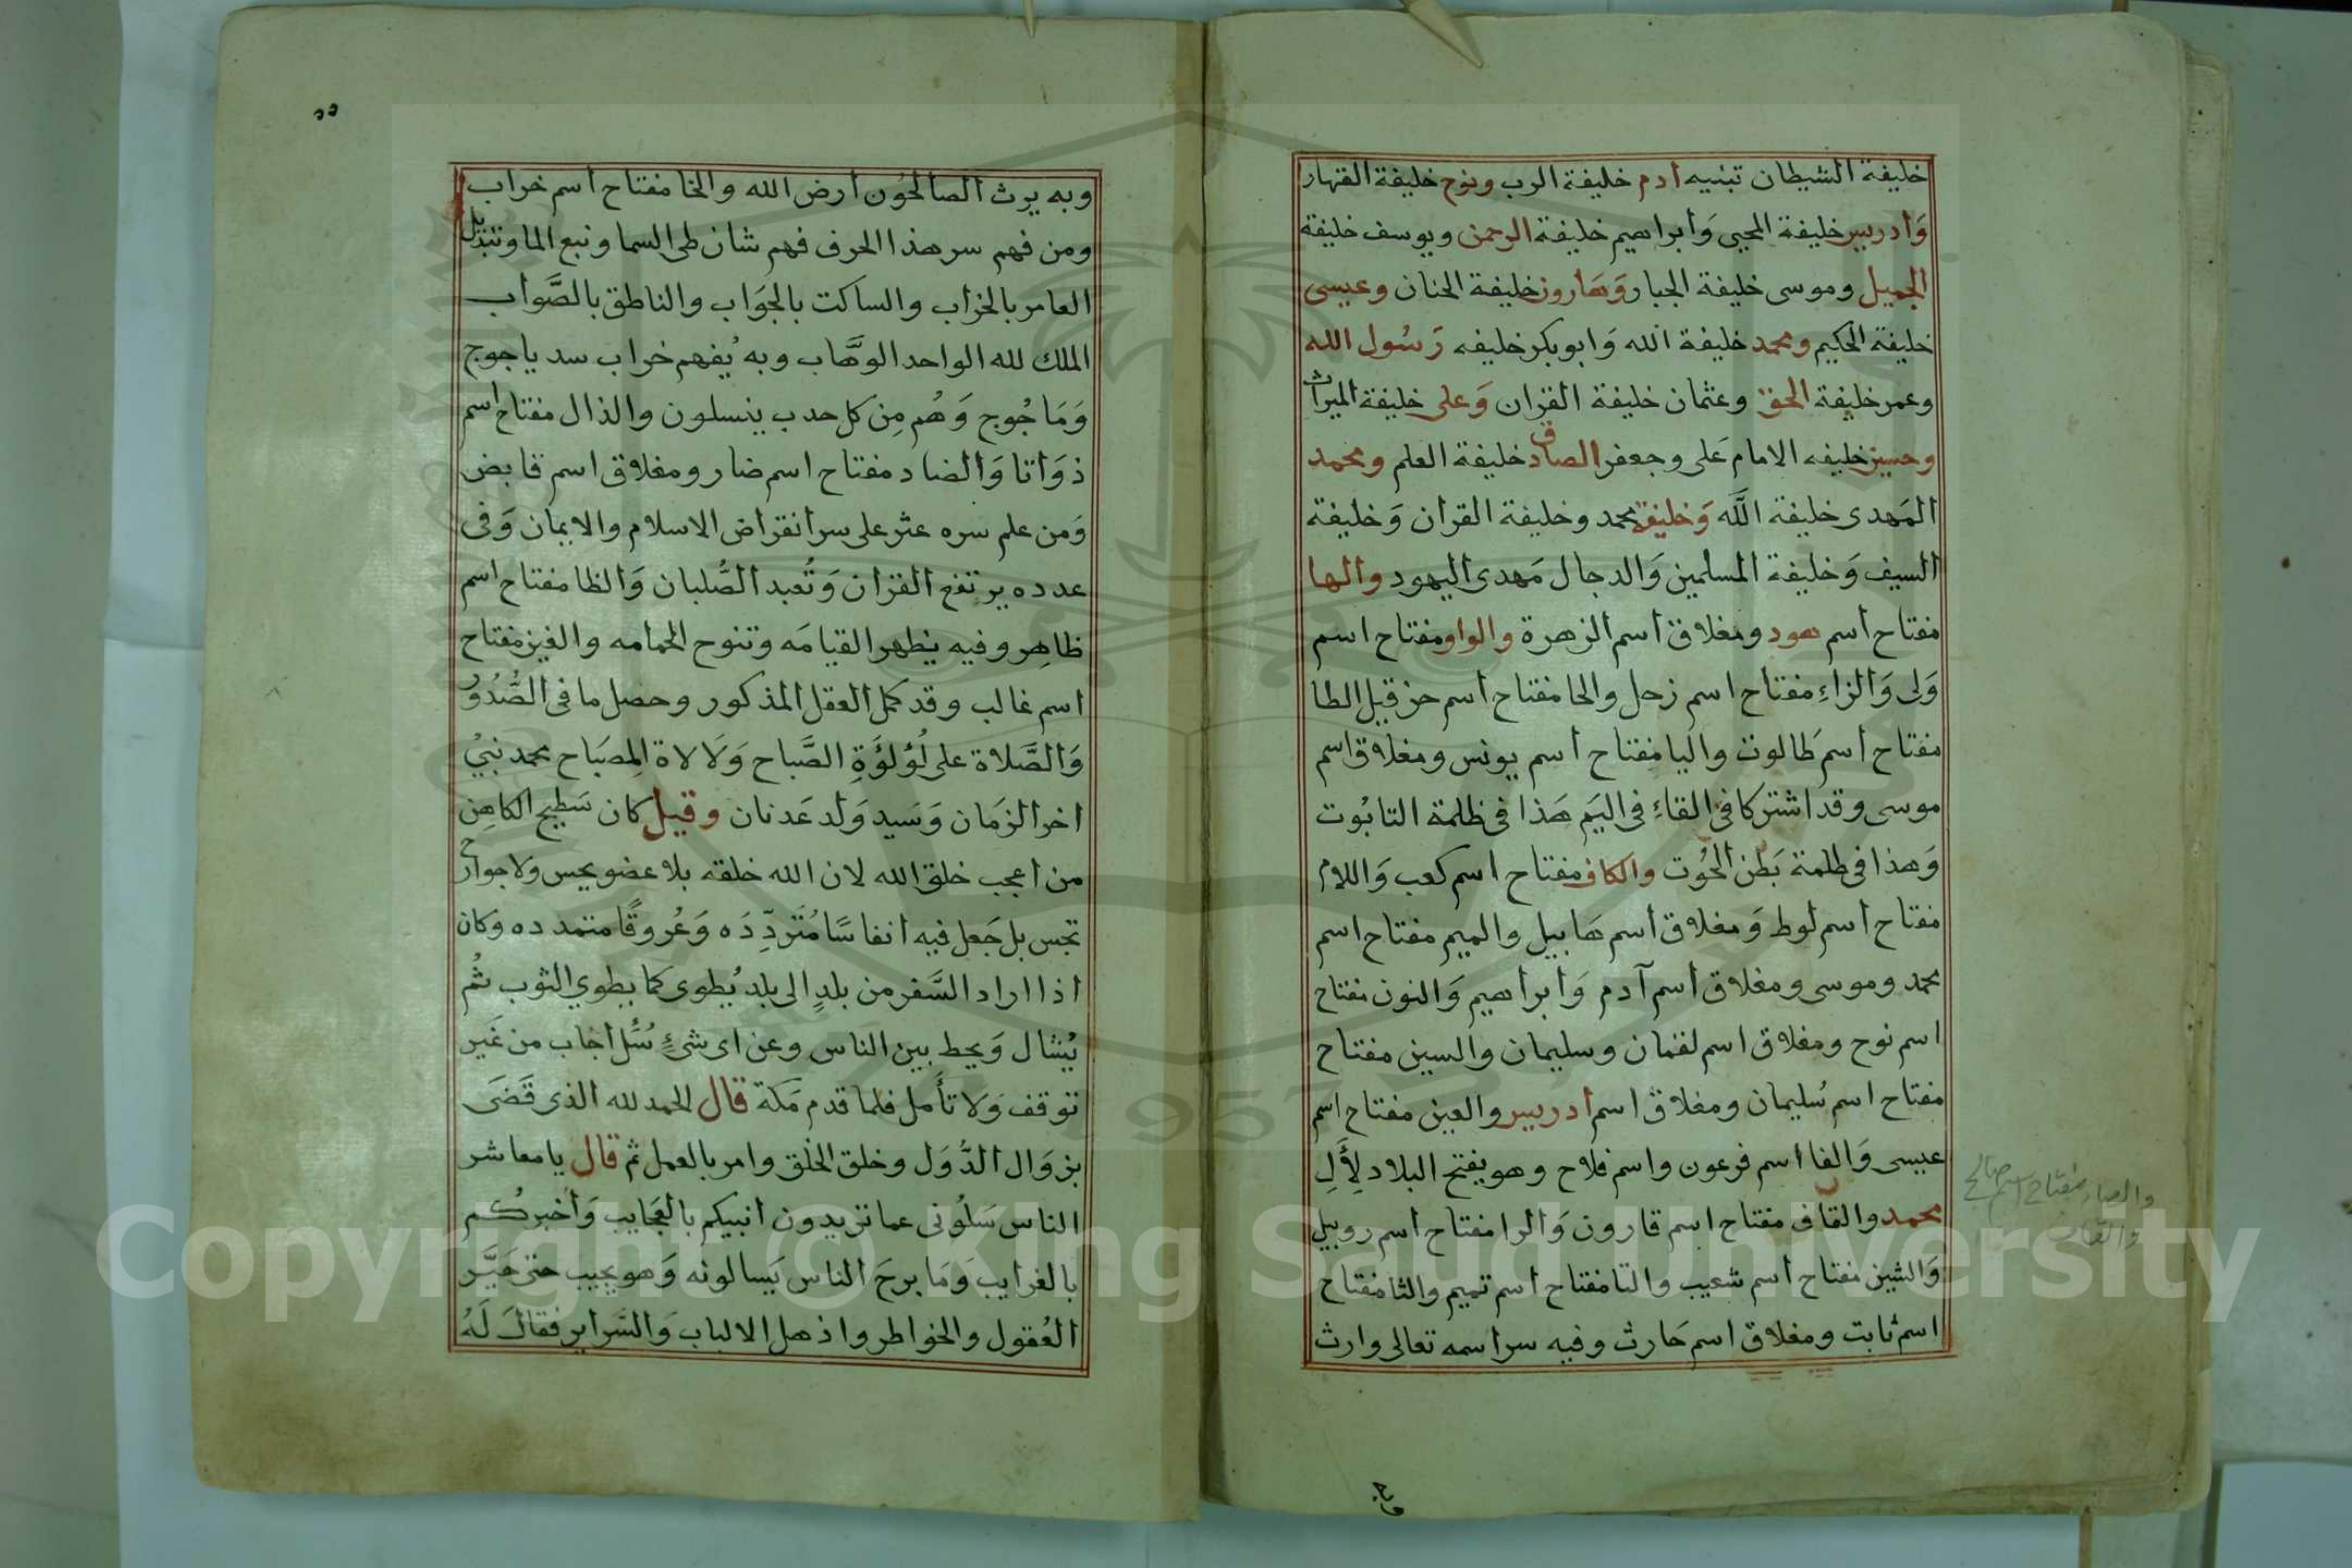 خليفة الشيطان تبنيه ادم خليفة الرب ونوح خليفة القهار
وَادريس خليفة المحيى وَابراهيم خليفة الرحمن ويوسف خليفة
الجميل وموسى خليفة الجبار وَهَارون خليفة الحنان وعيسى
خليفة الحكيم ومحمد خليفة الله وَابوبكر خليفه رَسُول الله
وعمر خليفة الحق وعثمان خليفة القران وَعلى خليفة الميراث
وحسين خليفه الامام عَلى وجعفر الصادق خليفة العلم ومحمد
المَهدى خليفة اللَّه وَخليفة محمد وخليفة القران وَخليفة
السيف وَخليفة المسلمين وَالدجال مَهدى اليهود والها
مفتاح اسم هود ومغلاق اسم الزهرة والواو مفتاح اسم
وَلى وَالزاءِ مفتاح اسم زحل والحا مفتاح اسم حزقيل الطا
مفتاح اسم طَالوت واليا مفتاح اسم يونس ومغلاق اسم
موسى وقد اشتركا فى القاءِ فى اليَم هَذا فى ظلمة التابُوت
وَهذا فى ظلمة بَطن الحُوت والكاف مفتاح اسم كعب وَاللام
مفتاح اسم لوط وَمغلاق اسم هَابيل والميم مفتاح اسم
محمد وموسى ومغلاق اسم آدم وَابراهيم وَالنون مفتاح
اسم نوح ومغلاق اسم لقمان وسليمان والسين مفتاح
مفتاح اسم سُليمان ومغلاق اسم ادريس والعين مفتاح اسم
عيسى وَالفا اسم فرعون واسم فلاح وهو يفتح البلاد لِأَلِ
محمد والقاف مفتاح اسم قارون وَالرا مفتاح اسم روبيل
وَالشين مفتاح اسم شعيب والتا مفتاح اسم تميم والثا مفتاح
اسم ثابت ومغلاق اسم حَارث وفيه سر اسمه تعالى وارث
والصاد مفتاح اسم صالح
والقاف
وبه
٥٥
وبه يرث الصالحُون ارض الله والخا مفتاح اسم خراب
ومن فهم سر هذا الحرف فهم شان طى السما ونبع الما وتبديل
العامر بالخراب والساكت بالجوَاب والناطق بالصَّواب
الملك لله الواحد الوهَّاب وبه يُفهم خراب سد ياجوج
وَمَاجُوج وَهُم مِن كل حدب ينسلون والذال مفتاح اسم
ذوَاتا وَالضاد مفتاح اسم ضار ومغلاق اسم قابض
وَمن علم سره عثر على سر انقراض الاسلام والايمان وَفى
عدده يرتفع القران وَتُعبد الصُّلبان وَالظا مفتاح اسم
ظاهِر وفيه يظهر القيامَه وتنوح الحمامه والغين مفتاح
اسم غالب وقد كمل العقل المذكور وحصل ما فى الصُّدُور
وَالصَّلاة على لُؤلُؤَةِ الصَّباح وَلَالاة المِصبَاح محمد نبىّ
اخر الزمَان وَسَيد وَلد عَدنان وقيل كان سَطيح الكاهِن
من اعجب خلق الله لان الله خلقه بلا عضو يحس ولا جوارح
تجس بل جَعل فيه انفاسًا مُتَردِّدَه وَعُروقًا متمدده وكان
اذا اراد السَّفر من بلدٍ الى بلد يُطوى كما يطوي الثوب ثُم
يُشال وَيحط بين الناس وعن اى شئٍ سُئل اجاب من غَير
توقف وَلا تأَمل فلما قدم مَكة قال الحمد لله الذى قَضَى
بزوَال الدُّوَل وخلق الخلق وامر بالعمل ثم قال يا معاشر
الناس سَلُونى عما تريدون انبيكم بالعجَايب وَاخبركُم
بالغرايب وَمَا برحَ الناس يَسالونه وَهو يجيب حتى حَيَّر
العُقول والخواطر واذهل الالباب وَالسَّراير فقالَ لَهُ
Copyright © King Saud University
1957